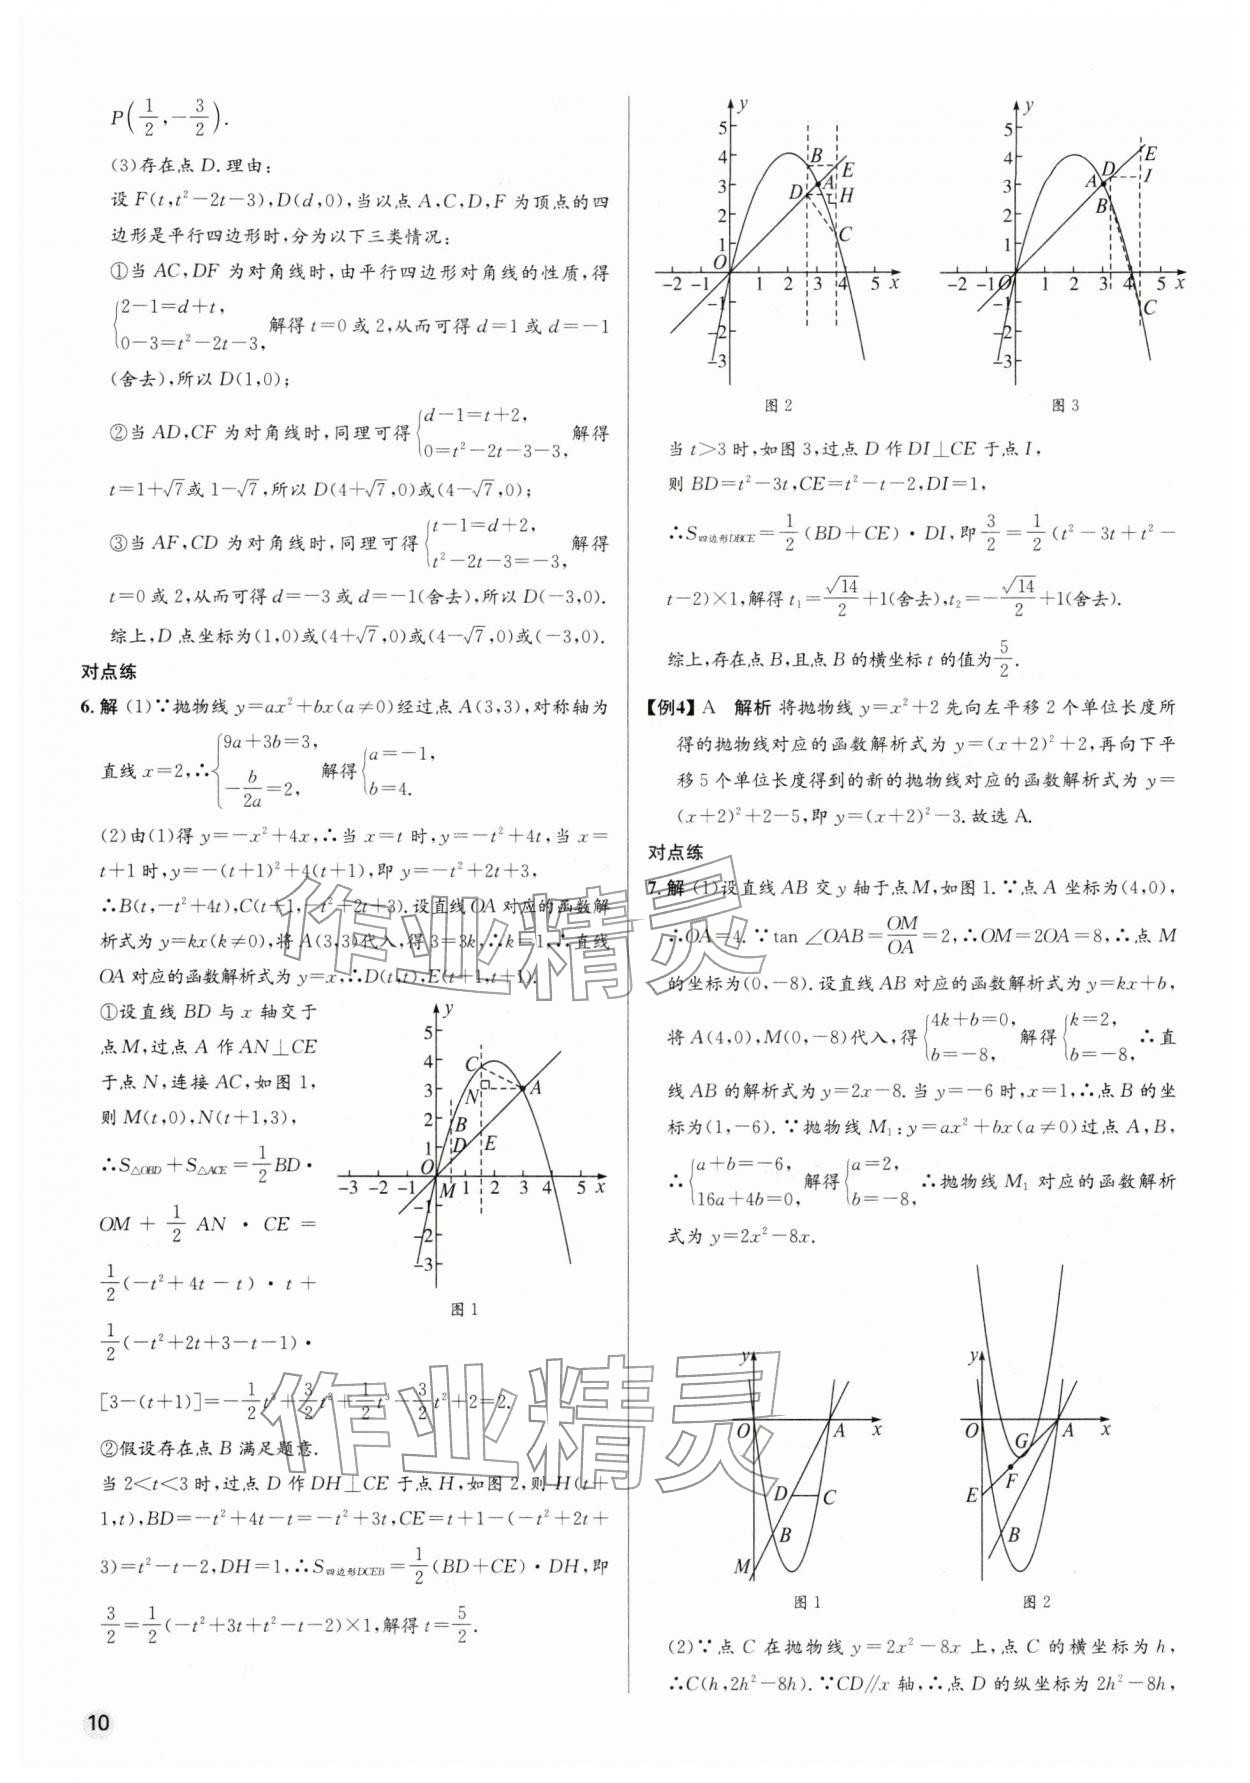 P(1/2,-3/2).
(3)存在点 D.理由:
设 F(t,t²-2t-3),D(d,0),当以点 A,C,D,F 为顶点的四
边形是平行四边形时,分为以下三类情况:
①当 AC,DF 为对角线时,由平行四边形对角线的性质,得
{2-1=d+t, 0-3=t²-2t-3, 解得 t=0 或 2,从而可得 d=1 或 d=-1
(舍去),所以 D(1,0);
②当 AD,CF 为对角线时,同理可得{d-1=t+2, 0=t²-2t-3-3, 解得
t=1+√7或 1-√7,所以 D(4+√7,0)或(4-√7,0);
③当 AF,CD 为对角线时,同理可得{t-1=d+2, t²-2t-3=-3, 解得
t=0 或 2,从而可得 d=-3 或 d=-1(舍去),所以 D(-3,0).
综上,D 点坐标为(1,0)或(4+√7,0)或(4-√7,0)或(-3,0).
对点练
6.解 (1)∵抛物线 y=ax²+bx(a≠0)经过点 A(3,3),对称轴为
直线 x=2,∴{9a+3b=3, -b/2a=2, 解得{a=-1, b=4.
(2)由(1)得 y=-x²+4x,∴当 x=t 时,y=-t²+4t,当 x=
t+1 时,y=-(t+1)²+4(t+1),即 y=-t²+2t+3,
∴B(t,-t²+4t),C(t+1,-t²+2t+3).设直线 OA 对应的函数解
析式为 y=kx(k≠0),将 A(3,3)代入,得 3=3k,∴k=1,∴直线
OA 对应的函数解析式为 y=x,∴D(t,t),E(t+1,t+1).
①设直线 BD 与 x 轴交于
点 M,过点 A 作 AN⊥CE
于点 N,连接 AC,如图 1,
则 M(t,0),N(t+1,3),
∴S△OBD+S△ACE=1/2 BD·
OM+1/2 AN·CE=
1/2(-t²+4t-t)·t+
1/2(-t²+2t+3-t-1)·
[3-(t+1)]=-1/2t³+3/2t²+1/2t³-3/2t²+2=2.
图 1
②假设存在点 B 满足题意.
当 2<t<3 时,过点 D 作 DH⊥CE 于点 H,如图 2,则 H(t+
1,t),BD=-t²+4t-t=-t²+3t,CE=t+1-(-t²+2t+
3)=t²-t-2,DH=1,∴S四边形DCEB=1/2(BD+CE)·DH,即
3/2=1/2(-t²+3t+t²-t-2)×1,解得 t=5/2.
图 2
图 3
当 t>3 时,如图 3,过点 D 作 DI⊥CE 于点 I,
则 BD=t²-3t,CE=t²-t-2,DI=1,
∴S四边形DBCE=1/2(BD+CE)·DI,即 3/2=1/2(t²-3t+t²-
t-2)×1,解得 t₁=√14/2+1(舍去),t₂=-√14/2+1(舍去).
综上,存在点 B,且点 B 的横坐标 t 的值为5/2.
【例4】A 解析 将抛物线 y=x²+2 先向左平移 2 个单位长度所
得的抛物线对应的函数解析式为 y=(x+2)²+2,再向下平
移 5 个单位长度得到的新的抛物线对应的函数解析式为 y=
(x+2)²+2-5,即 y=(x+2)²-3.故选 A.
对点练
7.解 (1)设直线 AB 交 y 轴于点 M,如图 1.∵点 A 坐标为(4,0),
∴OA=4.∵tan ∠OAB=OM/OA=2,∴OM=2OA=8,∴点 M
的坐标为(0,-8).设直线 AB 对应的函数解析式为 y=kx+b,
将 A(4,0),M(0,-8)代入,得{4k+b=0, b=-8, 解得{k=2, b=-8, ∴直
线 AB 的解析式为 y=2x-8.当 y=-6 时,x=1,∴点 B 的坐
标为(1,-6).∵抛物线 M₁:y=ax²+bx(a≠0)过点 A,B,
∴{a+b=-6, 16a+4b=0, 解得{a=2, b=-8, ∴抛物线 M₁ 对应的函数解析
式为 y=2x²-8x.
图 1
图 2
(2)∵点 C 在抛物线 y=2x²-8x 上,点 C 的横坐标为 h,
∴C(h,2h²-8h).∵CD∥x 轴,∴点 D 的纵坐标为 2h²-8h,
10
作业精灵
作业精灵